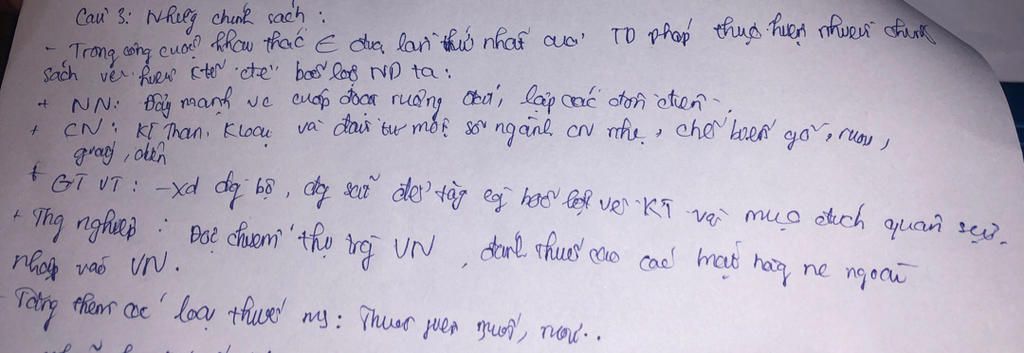 Câu 3: Những chính sách :
- Trong công cuộc khai thác ∈ địa lần thứ nhất của TD pháp thực hiện nhiều chính
sách về kinh tế để bóc lột ND ta:
+ NN: Đẩy mạnh vc cướp đoạt ruộng đất, lập các đồn điền.
+ CN: KT Than, K loại và đầu tư một số ngành CN nhẹ, chế biến gỗ, rượu,
giấy, điện
+ GTVT: - xd đg bộ, đg sắt để tăng cg bóc lột về KT và mục đích quân sự.
+ Thg nghiệp : Độc chiếm thị trg VN, đánh thuế cao các mặt hàng nc ngoài
nhập vào VN.
- Tăng thêm các loại thuế ms: Thuế muối, rượu..